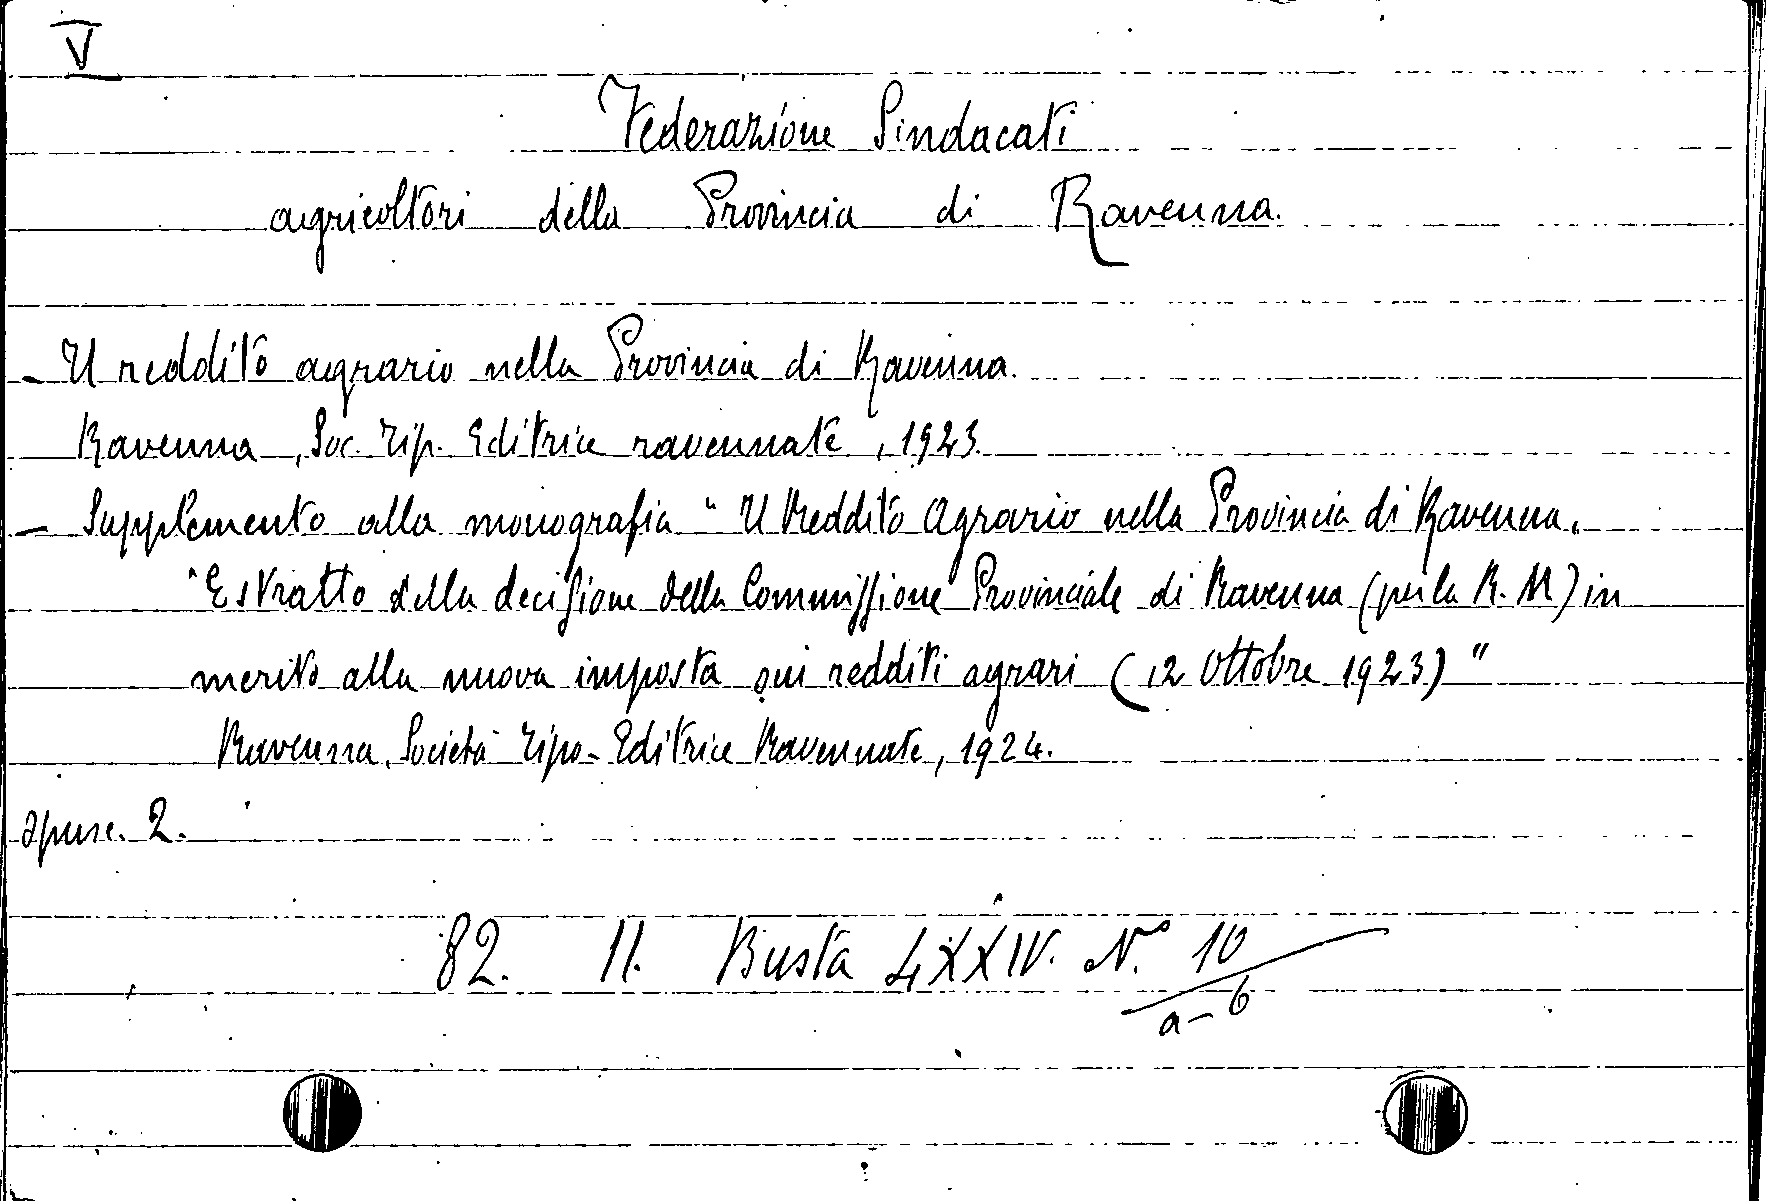 V
Federazione Sindacati
agricoltori della Provincia di Ravenna.
- Il reddito agrario nella Provincia di Ravenna.
Ravenna, Soc. Tip. Editrice ravennate, 1923.
- Supplemento alla monografia "Il Reddito Agrario nella Provincia di Ravenna„
"Estratto della decisione della Commissione Provinciale di Ravenna (per la R. M) in
merito alla nuova imposta sui redditi agrari (12 Ottobre 1923)"
Ravenna, Società Tipo-Editrice Ravennate, 1924.
opusc. 2.
82. 11. Busta LXXIV. N.° 10
a-b